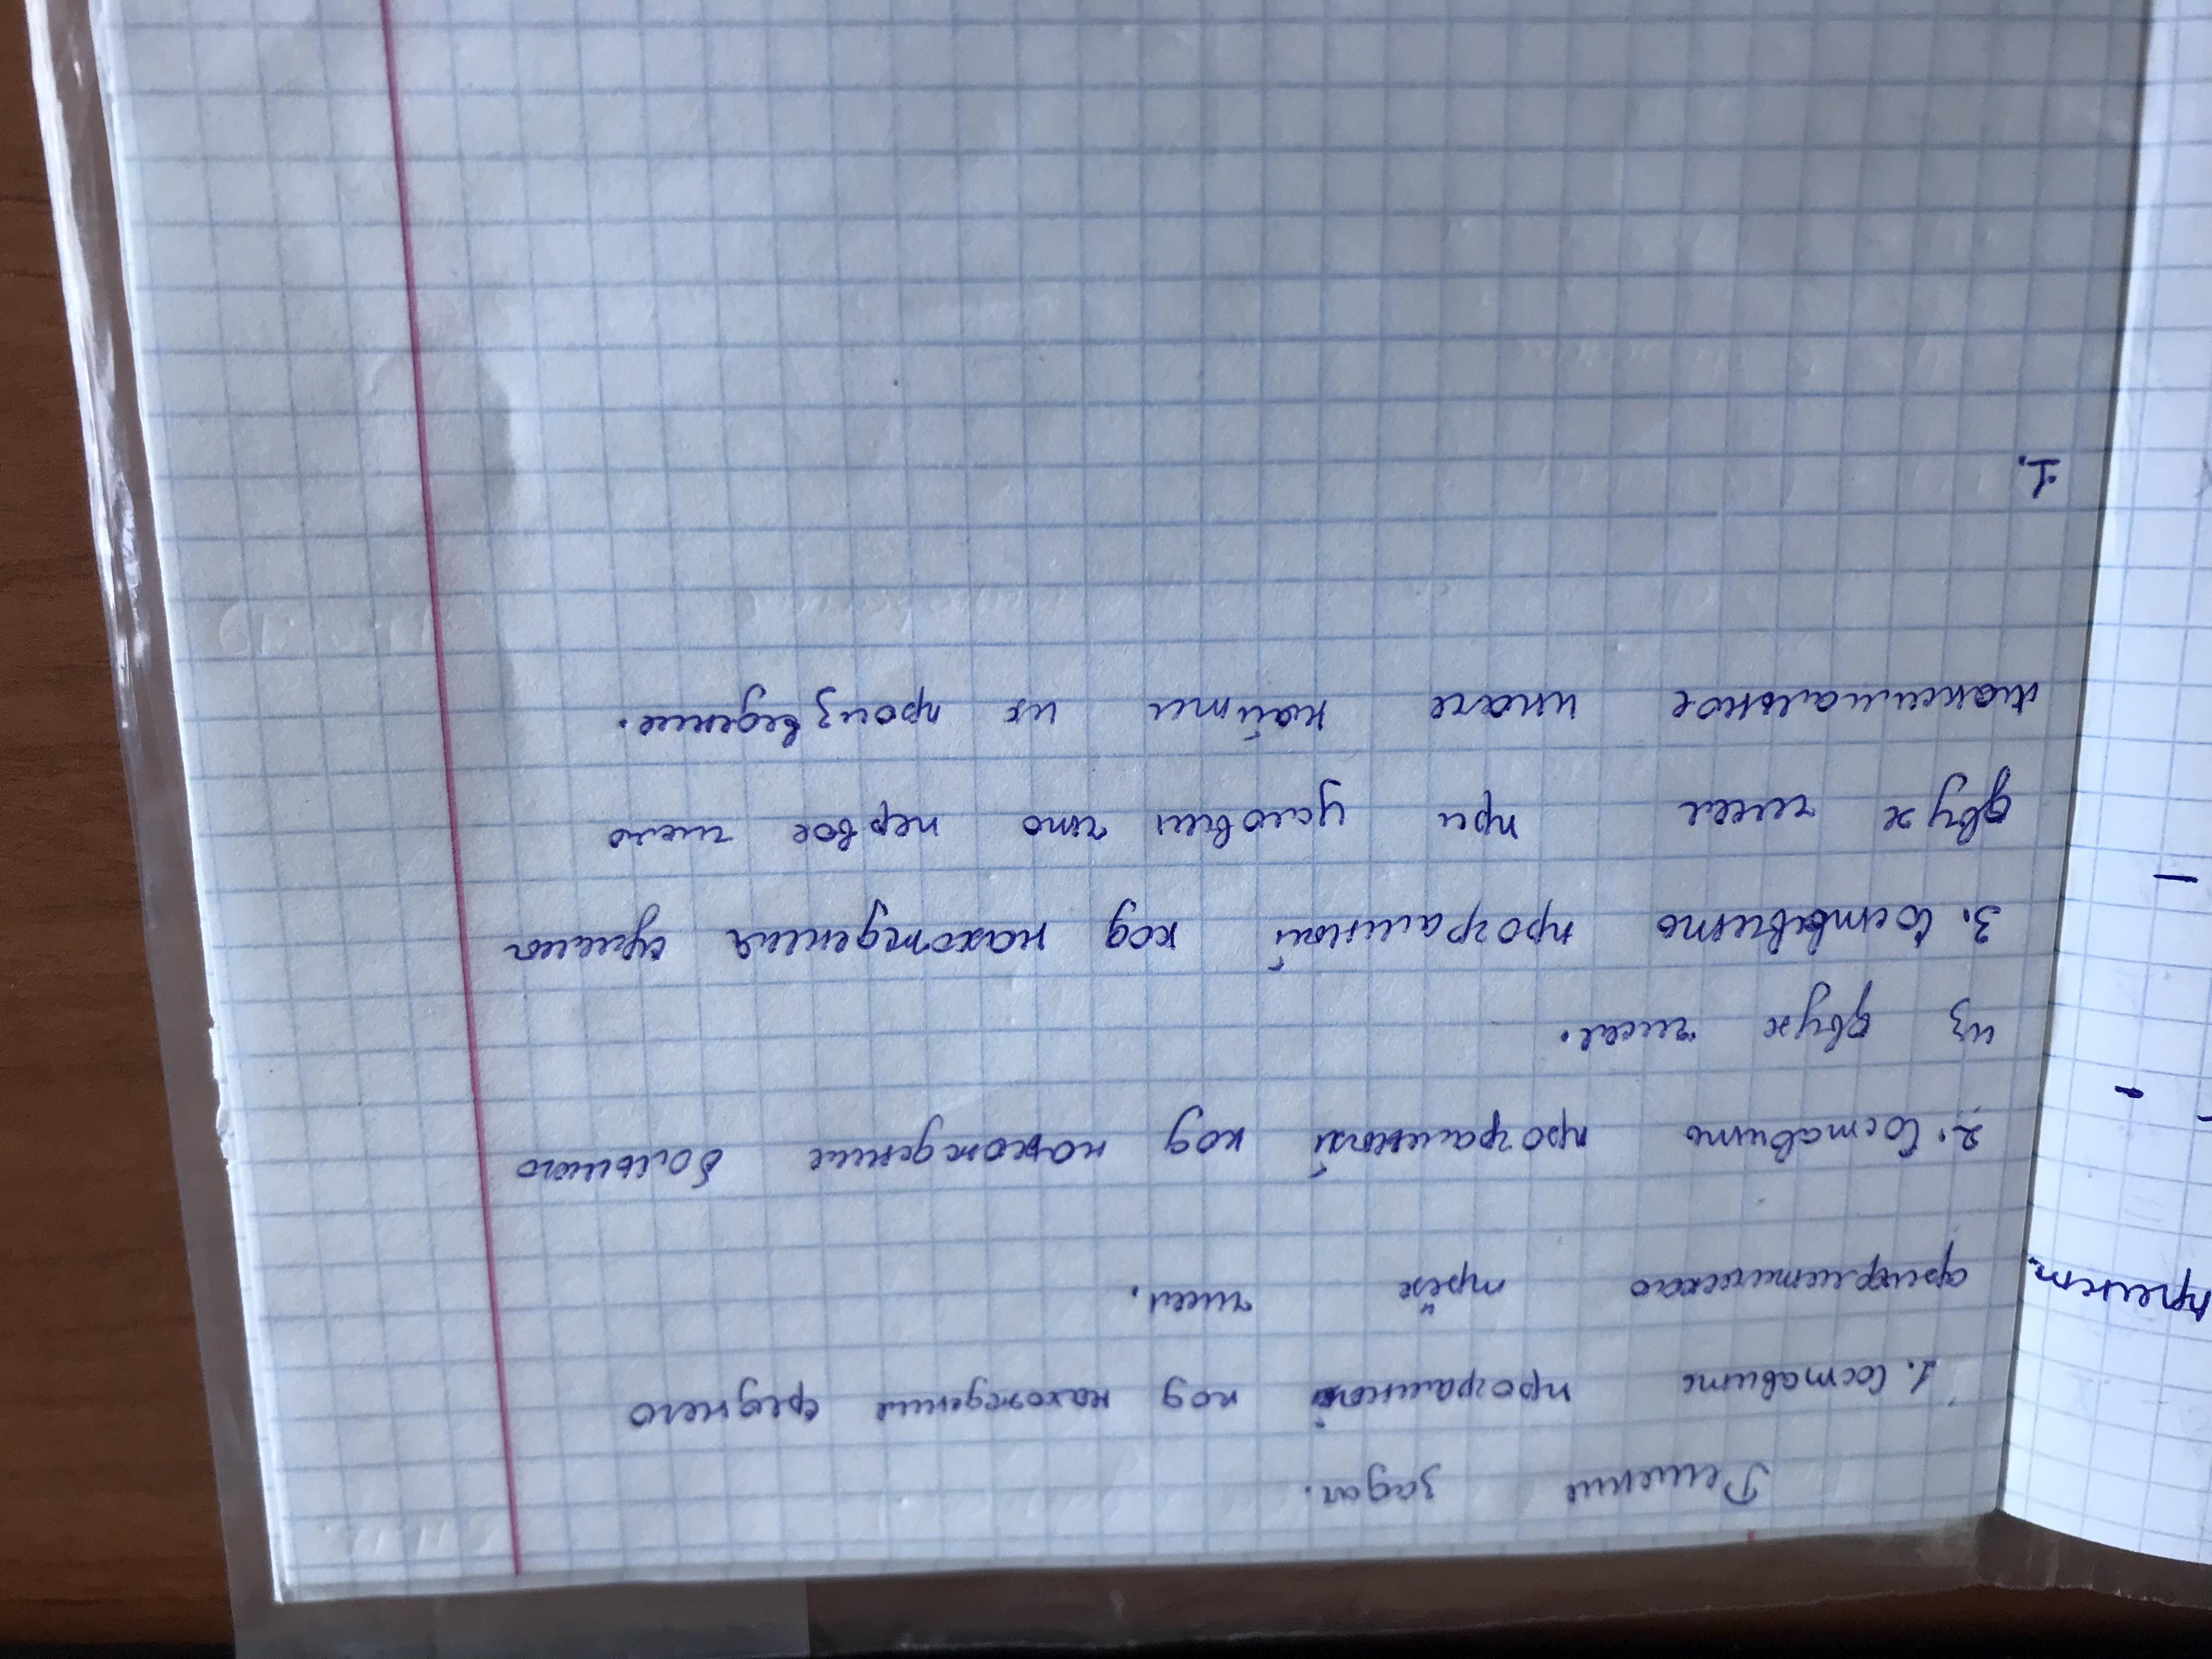 Решение задач.
1. Составить програмной код нахождение среднего
арифметического трёх чисел.
2. Составить програмной код нахождение большого
из двух чисел.
3. Составить програмной код нахождения суммы
двух чисел при условии что первое число
максимальное иначе найти их произведение.
1.